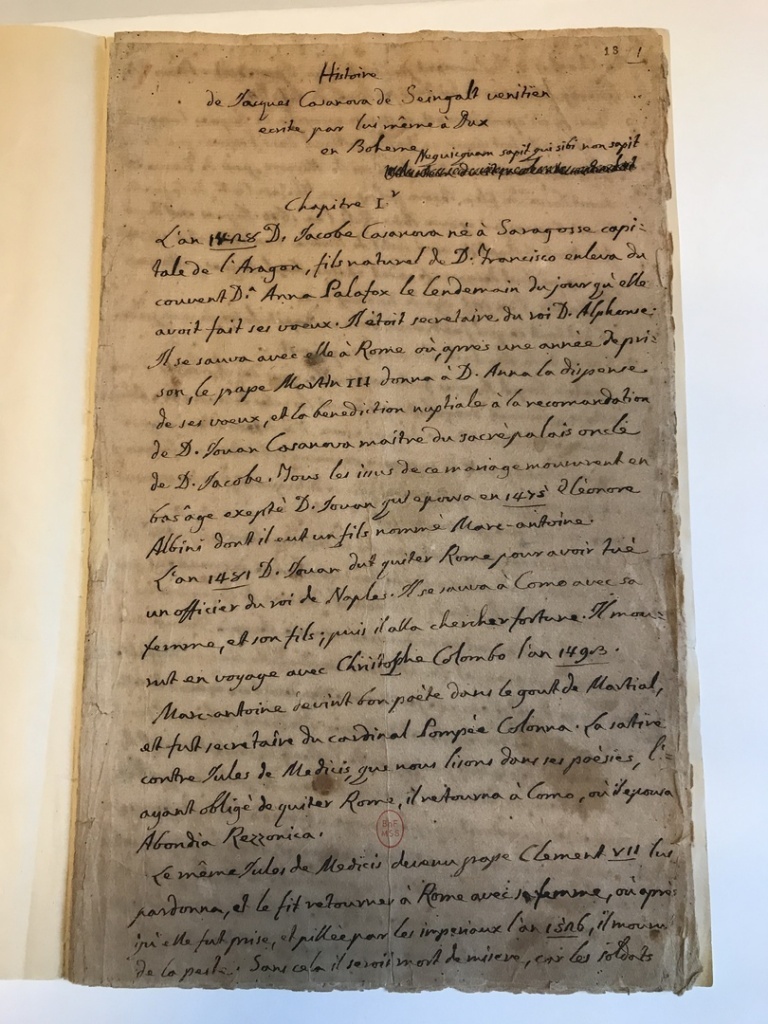 13 1
Histoire
de Jacques Casanova de Seingalt venitien
ecrite par lui même à Dux
en Boheme
Nequicquam sapit qui sibi non sapit
Chapitre I.r
L'an 1428 D. Jacobe Casanova né à Saragosse capi=
tale de l'Aragon, fils naturel de D. Francisco enleva du
couvent D.a Anna Palafox le lendemain du jour qu'elle
avoit fait ses voeux. Il étoit secretaire du roi D. Alphonse.
Il se sauva avec elle à Rome où, après une année de pri=
son, le pape Martin III donna à D. Anna la dispense
de ses voeux, et la benediction nuptiale à la recomandation
de D. Jouan Casanova maitre du sacré palais oncle
de D. Jacobe. Tous les issus de ce mariage moururent en
bas âge exepté D. Jouan qui epousa en 1475 Eléonore
Albini dont il eut un fils nommé Marc-antoine.
L'an 1481 D. Jouan dut quiter Rome pour avoir tué
un officier du roi de Naples. Il se sauva à Como avec sa
femme, et son fils; puis il alla chercher fortune. Il mou=
rut en voyage avec Christophe Colombo l'an 1493.
Marc-antoine devint bon poète dans le gout de Martial,
et fut secretaire du cardinal Pompée Colonna. La satire
contre Jules de Medicis, que nous lisons dans ses poèsies, l'=
ayant obligé de quiter Rome, il retourna à Como, où il epousa
Abondia Rezzonica.
BnF MSS
Le même Jules de Medicis devenu pape Clement VII lui
pardonna, et le fit retourner à Rome avec sa femme, où après
qu'elle fut prise, et pillée par les imperiaux l'an 1526, il mourut
de la peste. Sans cela il seroit mort de misere, car les soldats